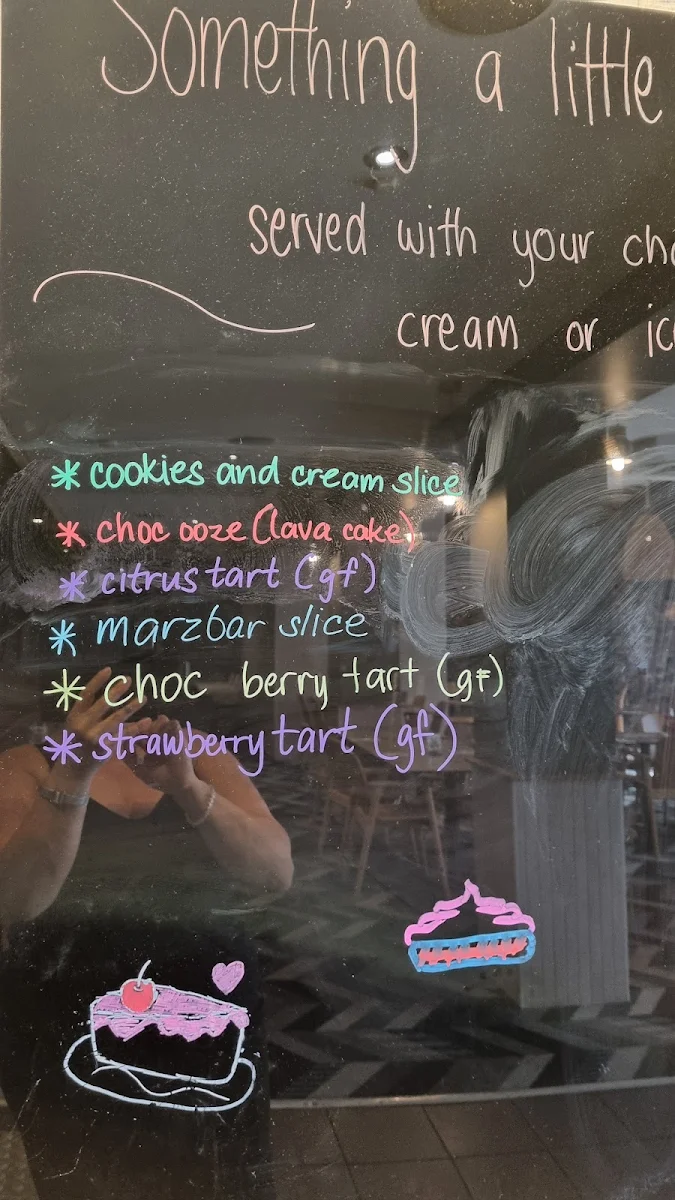 Something a little
served with your
cream or
* cookies and cream slice
* choc ooze (lava cake)
* citrus tart (gf)
* marzbar slice
* choc berry tart (gf)
* strawberry tart (gf)